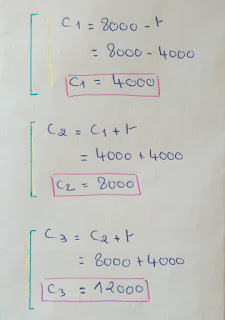 C1 = 8000 - r
= 8000 - 4000
C1 = 4000
C2 = C1 + r
= 4000 + 4000
C2 = 8000
C3 = C2 + r
= 8000 + 4000
C3 = 12000